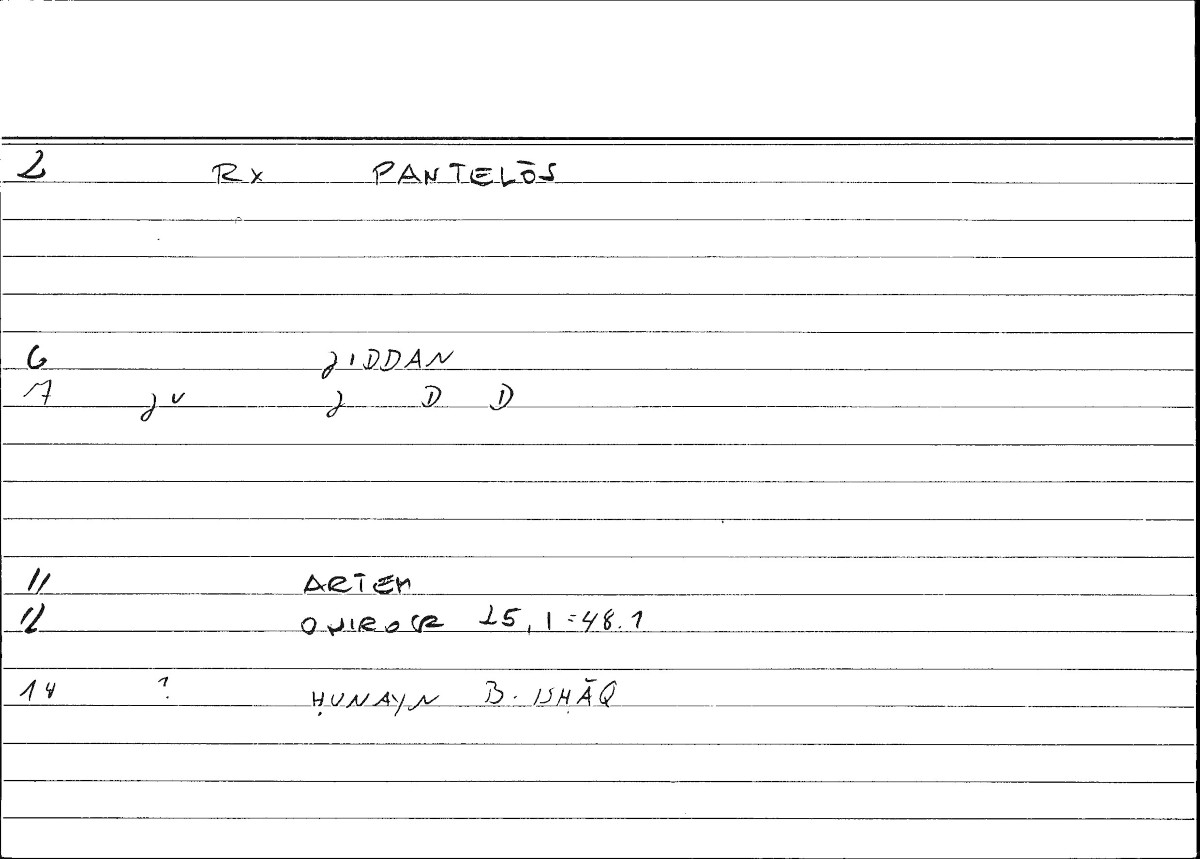 2 Rx PANTELŌS
6 JIDDAN
7 J V J D D
11 ARTEM
12 ONIROCR 25,1=48.1
14 ? ḤUNAYN B. ISḤĀQ